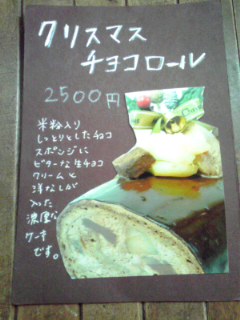 クリスマス
チョコロール
2500円
米粉入り
しっとりとしたチョコ
スポンジに
ビターな生チョコ
クリームと
洋なしが
入った
濃厚な
ケーキ
です。